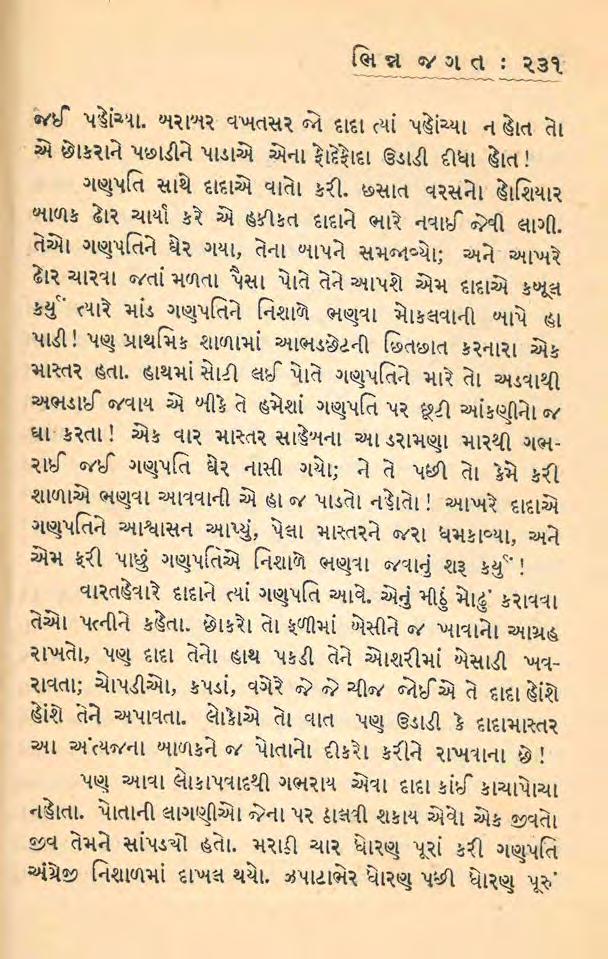 ભિન્ન જગત : ૨૩૧
જઈ પહોંચ્યા. બરાબર વખતસર જો દાદા ત્યાં પહોંચ્યા ન હોત તો
એ છોકરાને પછાડીને પાડાએ એના ફોદેફોદા ઉડાડી દીધા હોત!
ગણુપતિ સાથે દાદાએ વાતો કરી. છસાત વરસનો હોશિયાર
બાળક ઢોર ચાર્યા કરે એ હકીકત દાદાને ભારે નવાઈ જેવી લાગી.
તેઓ ગણુપતિને ઘેર ગયા, તેના બાપને સમજાવ્યો; અને આખરે
ઢોર ચારવા જતાં મળતા પૈસા પોતે તેને આપશે એમ દાદાએ કબૂલ
કર્યું ત્યારે માંડ ગણુપતિને નિશાળે ભણવા મોકલવાની બાપે હા
પાડી! પણ પ્રાથમિક શાળામાં આભડછેટની છિતછાત કરનારા એક
માસ્તર હતા. હાથમાં સોટી લઈ પોતે ગણુપતિને મારે તો અડવાથી
અભડાઈ જવાય એ બીકે તે હમેશાં ગણુપતિ પર છૂટી આંકણીનો જ
ઘા કરતા! એક વાર માસ્તર સાહેબના આ ડરામણા મારથી ગભ-
રાઈ જઈ ગણુપતિ ઘેર નાસી ગયો; ને તે પછી તો કેમે કરી
શાળાએ ભણવા આવવાની એ હા જ પાડતો નહોતો! આખરે દાદાએ
ગણુપતિને આશ્વાસન આપ્યું, પેલા માસ્તરને જરા ધમકાવ્યા, અને
એમ ફરી પાછું ગણુપતિએ નિશાળે ભણવા જવાનું શરૂ કર્યું!
વારતહેવારે દાદાને ત્યાં ગણુપતિ આવે. એનું મીઠું મોઢું કરાવવા
તેઓ પત્નીને કહેતા. છોકરો તો ફળીમાં બેસીને જ ખાવાનો આગ્રહ
રાખતો, પણ દાદા તેનો હાથ પકડી તેને ઓશરીમાં બેસાડી ખવ-
રાવતા; ચોપડીઓ, કપડાં, વગેરે જે જે ચીજ જોઈએ તે દાદા હોંશે
હોંશે તેને અપાવતા. લોકોએ તો વાત પણ ઉડાડી કે દાદામાસ્તર
આ અંત્યજના બાળકને જ પોતાનો દીકરો કરીને રાખવાના છે!
પણ આવા લોકાપવાદથી ગભરાય એવા દાદા કાંઈ કાચાપોચા
નહોતા. પોતાની લાગણીઓ જેના પર ઢાલવી શકાય એવો એક જીવતો
જીવ તેમને સાંપડયો હતો. મરાઠી ચાર ધોરણ પૂરાં કરી ગણુપતિ
અંગ્રેજી નિશાળમાં દાખલ થયો. ઝપાટાભેર ધોરણ પછી ધોરણ પૂરું